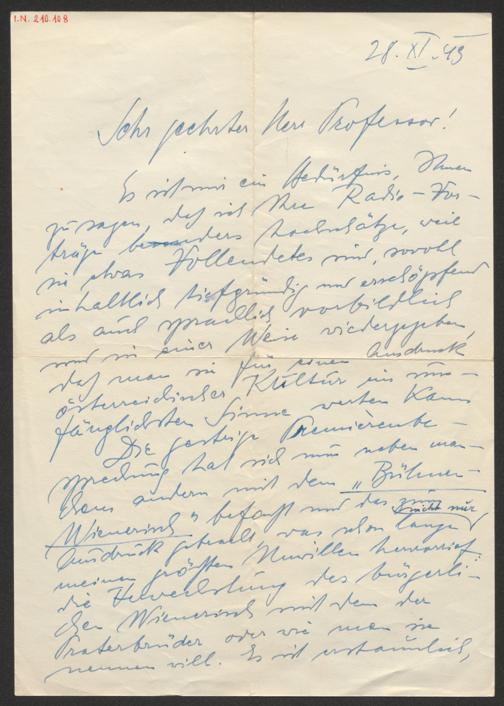 I.N. 210.108
28. XI. 49
Sehr geehrter Herr Professor!
Es ist mir ein Bedürfnis, Ihnen
zu sagen, daß ich Ihre Radio-Vor-
träge besonders hochschätze, weil
sie etwas Vollendetes sind, sowohl
inhaltlich tiefgründig und erschöpfend
als auch sprachlich vorbildlich
und in einer Weise wiedergegeben,
daß man sie für einen Ausdruck
österreichischer Kultur im um-
fänglichsten Sinne werten kann
Die gestrige Premièrenbe-
sprechung hat sich nun neben man-
chem andern mit dem „Bühnen-
Wienerisch" befaßt und das zum
nicht nur
Ausdruck gebracht, was schon lange
meinen größten Unwillen hervorrief:
die Verwechslung des bürgerli-
chen Wienerisch mit dem der
Praterbrüder oder wie man sie
nennen will. Es ist erstaunlich,